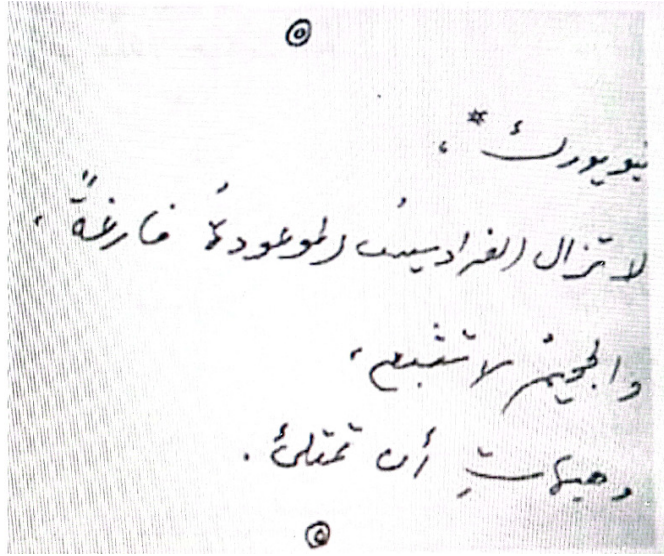 نيويورك*،
لا تزال الفراديسُ الموعودةُ فارغةً،
والجحيمُ لا تشبع،
وهيهاتِ أن تمتلئ.